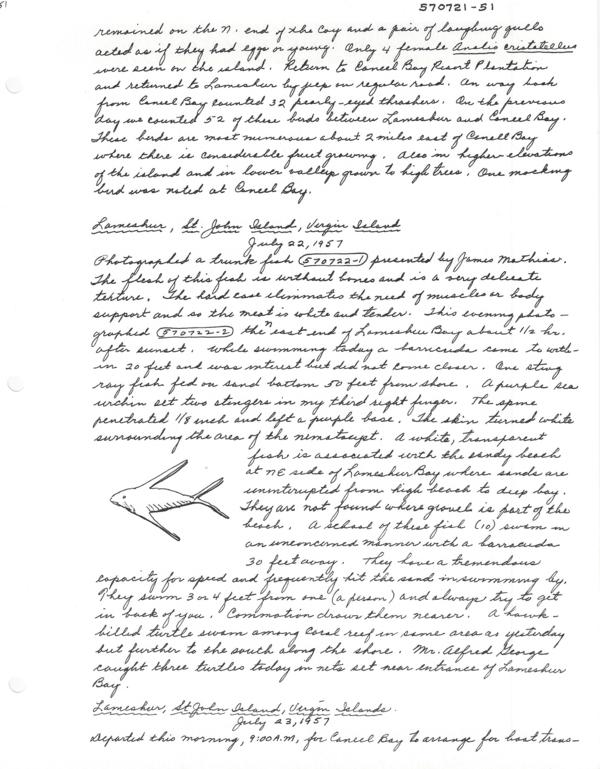 51
570721-51
remained on the N. end of the Cay and a pair of laughing gulls
acted as if they had eggs or young. Only 4 female Anolis cristatellus
were seen on the island. Return to Caneel Bay Resort Plantation
and returned to Lameshur by jeep on regular road. On way back
from Caneel Bay counted 32 pearly-eyed thrashers. On the previous
day we counted 52 of these birds between Lameshur and Caneel Bay.
These birds are most numerous about 2 miles east of Canell Bay
where there is considerable fruit growing. Also in higher elevations
of the island and in lower valleys grown to high trees. One mocking
bird was noted at Caneel Bay.
Lameshur, St. John Island, Virgin Island
July 22, 1957
Photographed a trunk fish (570722-1) presented by James Mathias.
The flesh of this fish is without bones and is a very delicate
texture. The hard case eliminates the need of muscles or body
support and so the meat is white and tender. This evening photo-
graphed (570722-2) the n east end of Lameshur Bay about 1/2 hr.
after sunset. While swimming today a barricuda came to with-
in 20 feet and was interest but did not come closer. One sting
ray fish fed on sand bottom 50 feet from shore. A purple sea
urchin set two stengers in my third right finger. The spine
penetrated 1/8 inch and left a purple base. The skin turned white
surrounding the area of the nematocyst. A white, transparent
fish is associated with the sandy beach
at NE side of Lameshur Bay where sands are
uninterupted from high beach to deep bay.
They are not found where gravel is part of the
beach. A school of these fish (10) swam in
an unconcerned manner with a barracuda
30 feet away. They have a tremendous
capacity for speed and frequently hit the sand in swimming by.
They swim 3 or 4 feet from one (a person) and always try to get
in back of you. Commotion draws them nearer. A hawk-
billed turtle swam among coral reef in same area as yesterday
but further to the south along the shore. Mr. Alfred George
caught three turtles today in nets set near entrance of Lameshur
Bay.
Lameshur, St John Island, Virgin Islands.
July 23, 1957
Departed this morning, 9:00 A.M, for Caneel Bay to arrange for boat trans-